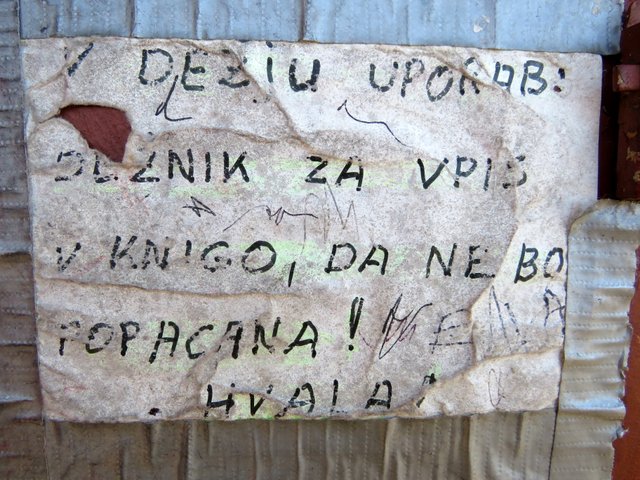 V DEŽJU UPORAB:
DEŽNIK ZA VPIS
V KNIGO, DA NE BO
POPACANA!
HVALA!